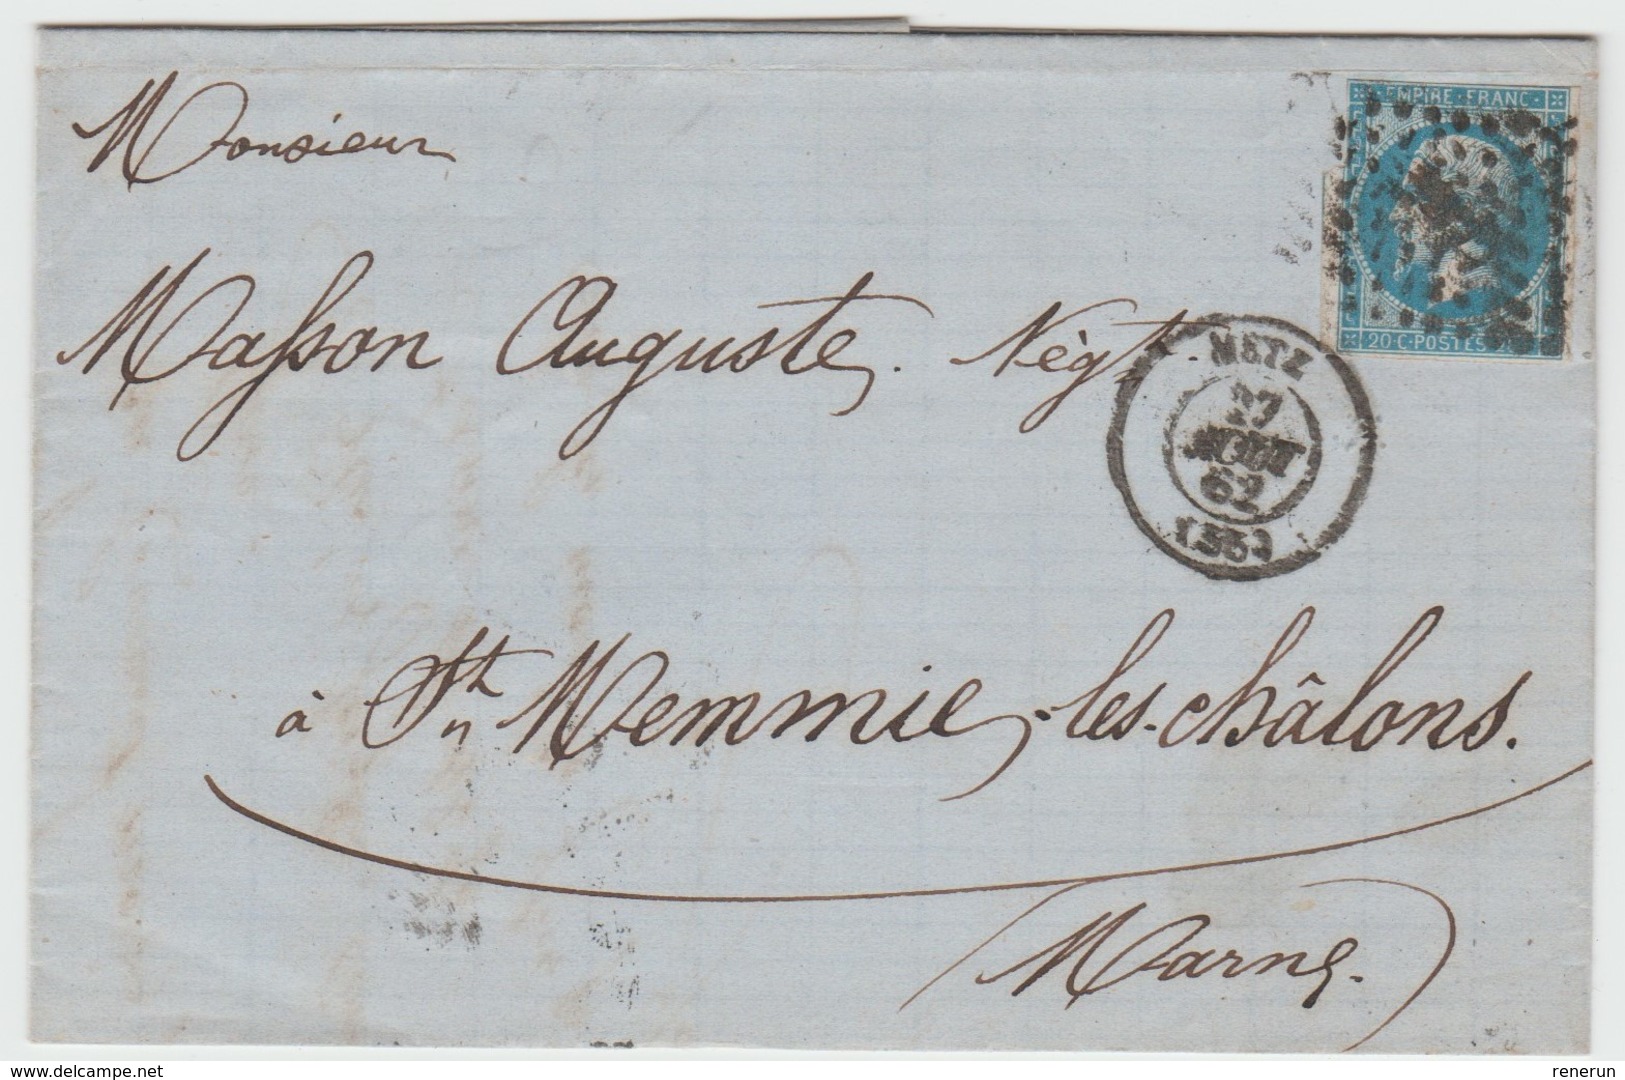 Monsieur
EMPIRE · FRANC ·
Masson Auguste, Négt.
20 · C · POSTES · 2
METZ
27
AOUT
62
(55)
à St Memmie-les-châlons.
(Marne.)
www.delcampe.net
renerun